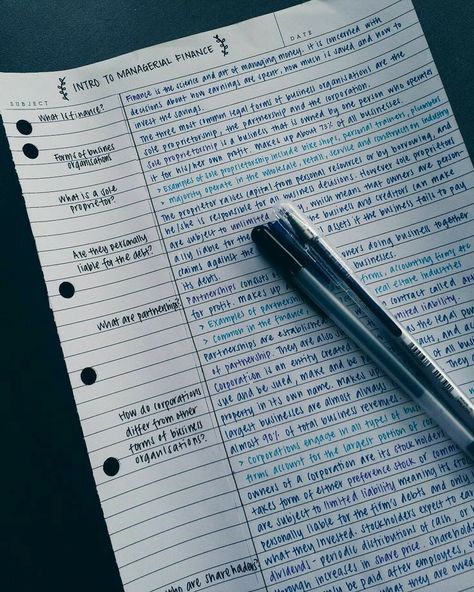 INTRO TO MANAGERIAL FINANCE
SUBJECT
DATE
What is finance?
Forms of business
organisations
What is a sole
proprietor?
Are they personally
liable for the debt?
What are partnerships?
How do corporations
differ from other
forms of business
organisations?
who are shareholders?
Finance is the science and art of managing money. It is concerned with
decisions about how earnings are spent, how much is saved and how to
invest the savings.
The three most common legal forms of business organisations are the
sole proprietorship, the partnership and the corporation.
sole proprietorship is a business that is owned by one person who operates
it for his/her own profit. makes up about 75% of all businesses.
> Examples of sole proprietorship include bike shops, personal trainers, plumbers
> majority operate in the wholesale, retail, service and construction industry
The proprietor raises capital from personal resources or by borrowing, and
he/she is responsible for all business decisions. However sole proprietors
are subject to unlimited liability, which means that owners are person-
ally liable for the debts of the business and creditors can make
claims against the assets if the business fails to pay
its debts.
Partnerships consists owners doing business together
for profit. makes up businesses.
> Examples of partnership firms, accounting firms, etc
> Common in the finance real estate industries
Partnerships are established contract called
of partnership. They are also liability.
Corporation is an entity created the legal po
sue and be sued, make and be pa acts, and
property in its own name. makes up
largest businesses are almost always
almost 90% of total business revenues.
> corporations engage in all types of busi
firms account for the largest portion of co
owners of a corporation are its stockholders
takes form of either preference stock or comm
are subject to limited liability meaning its st
personally liable for the firm's debts and only
what they invested. Stockholders expect to e
dividends - periodic distributions of cash, or
through increases in share price. Shareho
only be paid after employees, s
they are owed